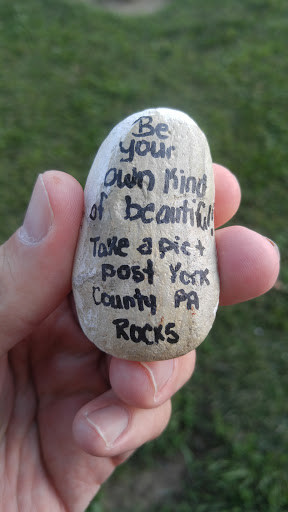 Be
your
own Kind
of beautiful!
Take a pic +
post York
County PA
ROCKS